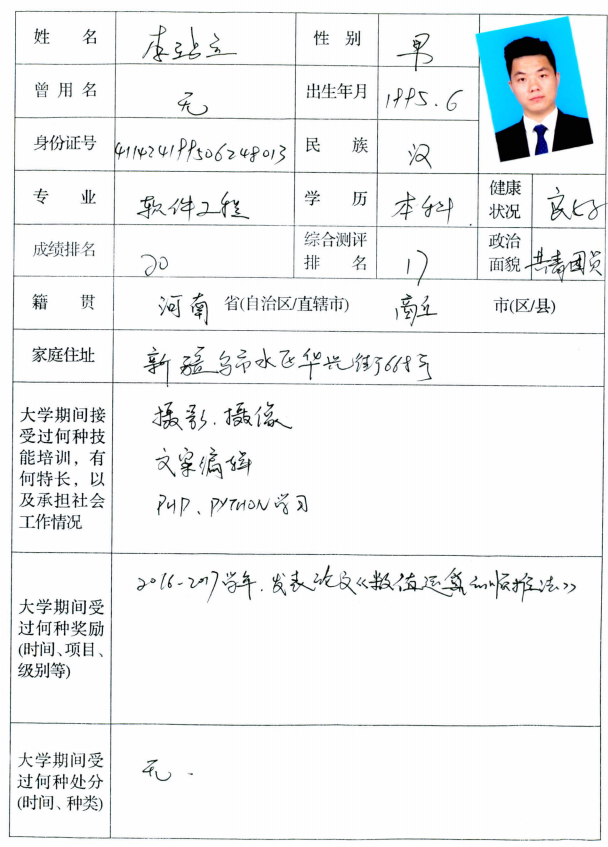 姓名 李强立 性别 男
曾用名 无 出生年月 1995.6
身份证号 411424199506248013 民族 汉
专业 软件工程 学历 本科 健康状况 良好
成绩排名 20 综合测评排名 17 政治面貌 共青团员
籍贯 河南 省(自治区/直辖市) 商丘 市(区/县)
家庭住址 新疆乌市水区华兴街668号
大学期间接
受过何种技
能培训，有
何特长，以
及承担社会
工作情况
摄影、摄像
文案编辑
PHP、PYTHON学习
大学期间受
过何种奖励
(时间、项目、
级别等)
2016-2017学年，发表论文《数值运算 推法》
大学期间受
过何种处分
(时间、种类)
无.